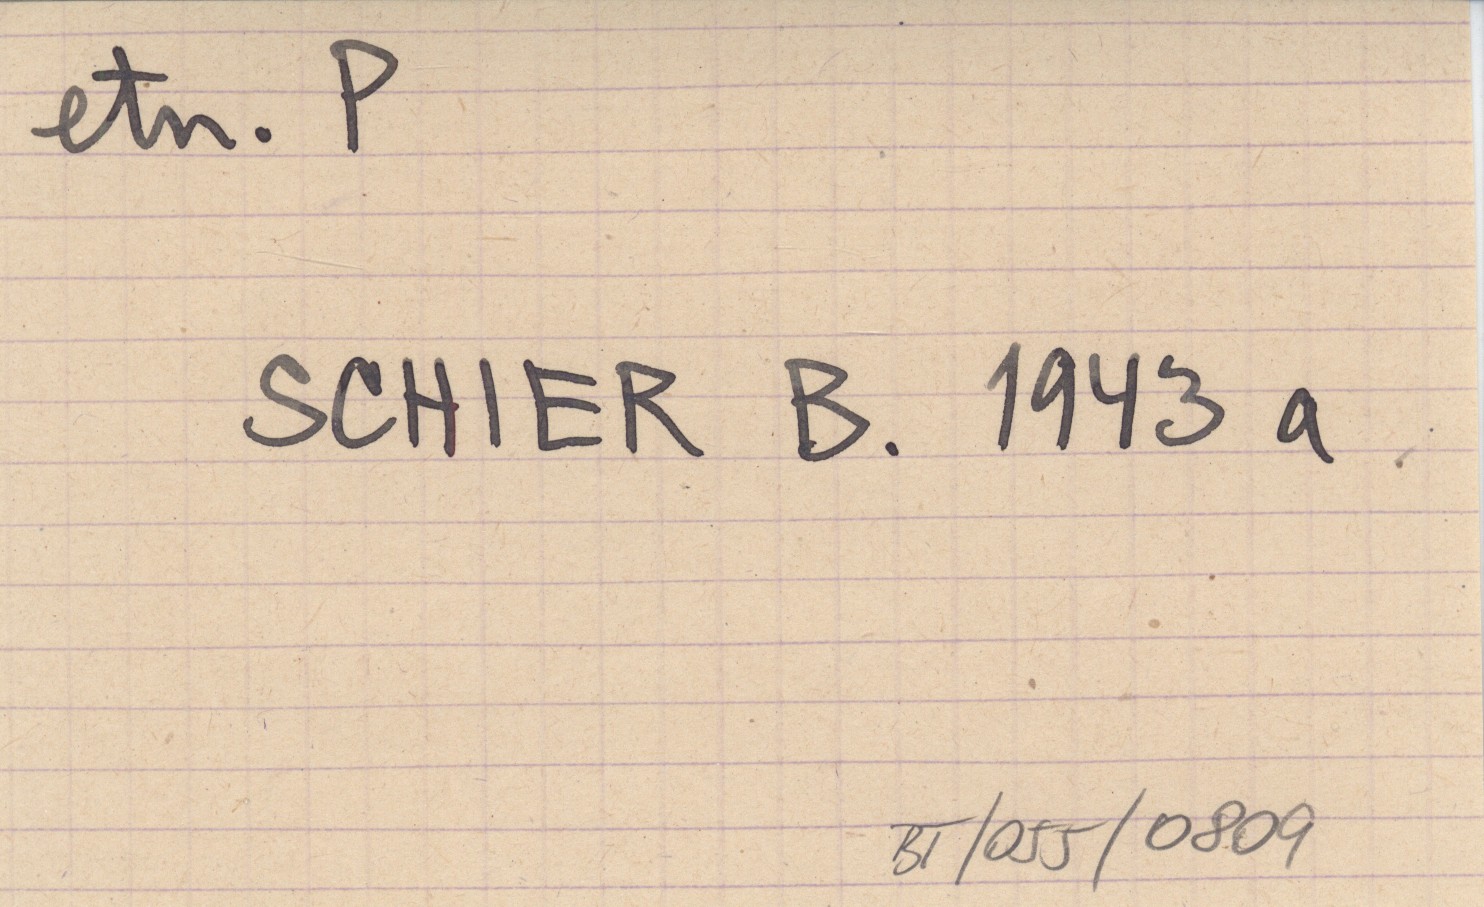 etn. P
SCHIER B. 1943 a
BT/055/0809